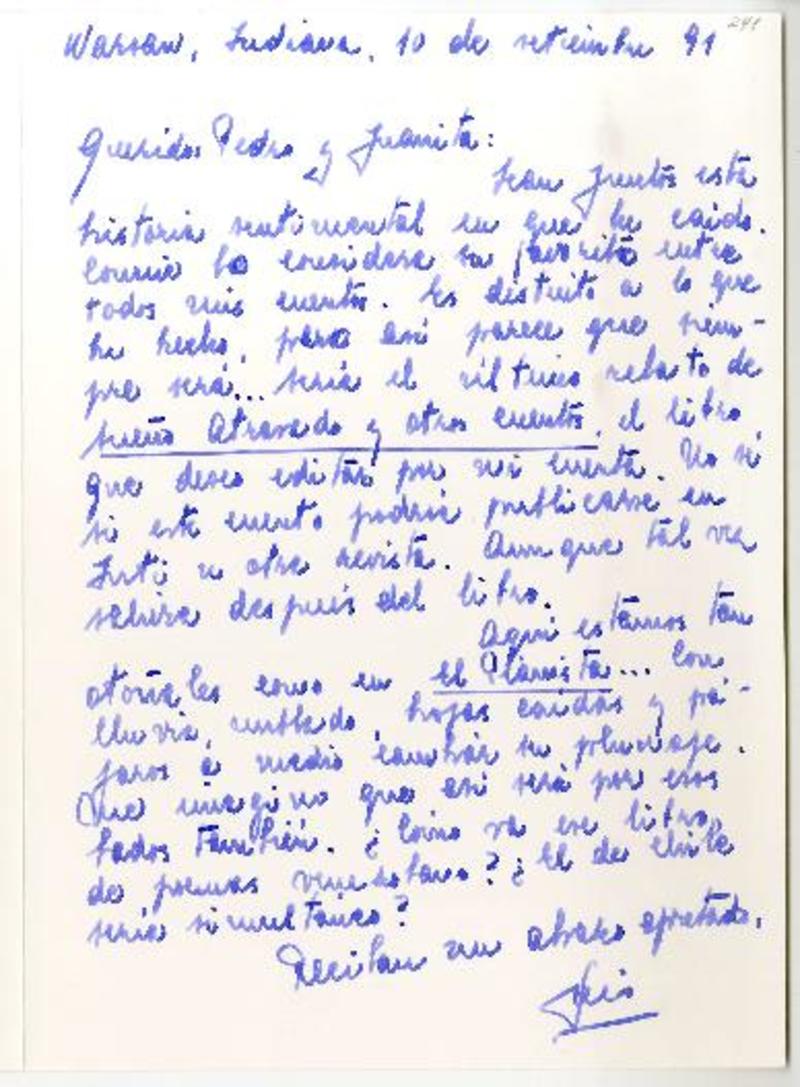 241
Warsaw, Indiana, 10 de setiembre 91
Queridos Pedro y Juanita:
Lean juntos esta
historia sentimental en que he caído.
Connie la considera su favorita entre
todos mis cuentos. Es distinto a lo que
he hecho, pero así parece que siem-
pre será... sería el último relato de
Sueño Atravesado y otros cuentos, el libro
que deseo editar por mi cuenta. No sé
si este cuento podría publicarse en
Inti u otra revista. Aunque tal vez
saliera después del libro.
Aquí estamos tan
otoñales como en El Pianista... Con
lluvia, nublado, hojas caídas y pá-
jaros a medio cambiar su plumaje.
Me imagino que así será por esos
lados también. ¿Cómo va ese libro
de poemas venezolano? ¿El de Chile
sería simultáneo?
Reciban un abrazo apretado,
Luis